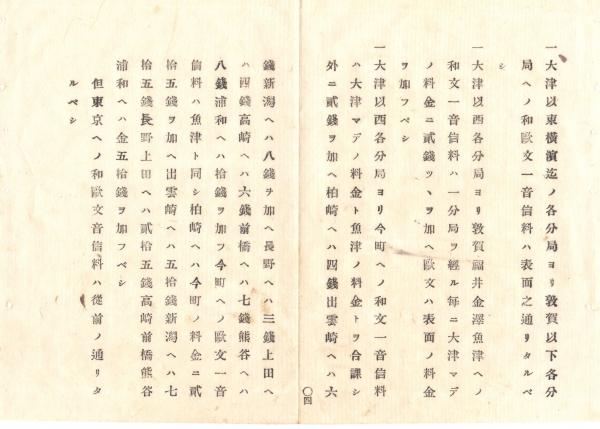 一大津以東橫濱迄ノ各分局ヨリ敦賀以下各分
局ヘノ和歐文一音信料ハ表面之通リタルベ
シ
一大津以西各分局ヨリ敦賀福井金澤魚津ヘノ
和文一音信料ハ一分局ヲ經ル每ニ大津マデ
ノ料金ニ貳錢ツヽヲ加ヘ歐文ハ表面ノ料金
ヲ加フベシ
一大津以西各分局ヨリ今町ヘノ和文一音信料
ハ大津マデノ料金ト魚津ノ料金トヲ合課シ
外ニ貳錢ヲ加ヘ柏崎ヘハ四錢出雲崎ヘハ六
〇四
錢新潟ヘハ八錢ヲ加ヘ長野ヘハ三錢上田ヘ
ハ四錢高崎ヘハ六錢前橋ヘハ七錢熊谷ヘハ
八錢浦和ヘハ拾錢ヲ加フ今町ヘノ歐文一音
信料ハ魚津ト同シ柏崎ヘハ今町ノ料金ニ貳
拾五錢ヲ加ヘ出雲崎ヘハ五拾錢新潟ヘハ七
拾五錢長野上田ヘハ貳拾五錢高崎前橋熊谷
浦和ヘハ金五拾錢ヲ加フベシ
但東京ヘノ和歐文音信料ハ從前ノ通リタ
ルベシ